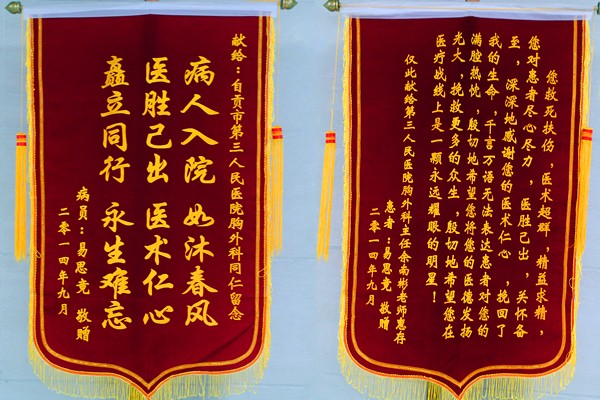 献给：自贡市第三人民医院胸外科同仁留念
病人入院 如沐春风
医胜己出 医术仁心
矗立同行 永生难忘
病员：易思竟 敬赠
二零一四年九月
您救死扶伤，医术超群，精益求精，
您对患者尽心尽力，医胜己出，关怀备
至，深深地感谢您的医术仁心，挽回了
我的生命，千言万语无法表达患者对您的
满腔热忱，殷切地希望您将您的医德发扬
光大，挽救更多的众生，殷切地希望您在
医疗战线上是一颗永远耀眼的明星！
仅此献给第三人民医院胸外科主任余南彬老师惠存
患者：易思竟 敬赠
二零一四年九月